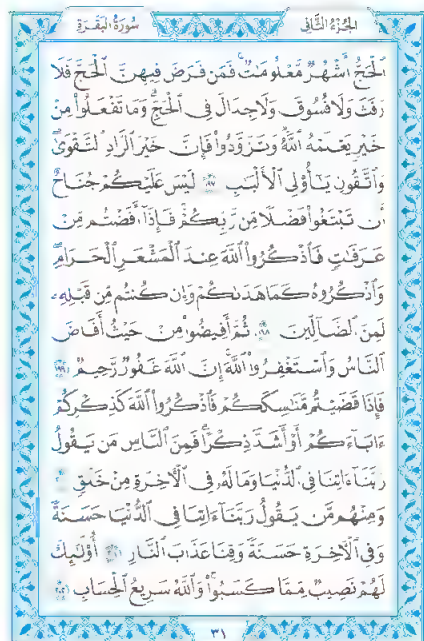 الجزء الثاني سورة البقرة
ٱلۡحَجُّ أَشۡهُرٞ مَّعۡلُومَٰتٞۚ فَمَن فَرَضَ فِيهِنَّ ٱلۡحَجَّ فَلَا
رَفَثَ وَلَا فُسُوقَ وَلَا جِدَالَ فِي ٱلۡحَجِّۗ وَمَا تَفۡعَلُواْ مِنۡ
خَيۡرٖ يَعۡلَمۡهُ ٱللَّهُۗ وَتَزَوَّدُواْ فَإِنَّ خَيۡرَ ٱلزَّادِ ٱلتَّقۡوَىٰۖ
وَٱتَّقُونِ يَٰٓأُوْلِي ٱلۡأَلۡبَٰبِ ١٩٧ لَيۡسَ عَلَيۡكُمۡ جُنَاحٌ
أَن تَبۡتَغُواْ فَضۡلٗا مِّن رَّبِّكُمۡۚ فَإِذَآ أَفَضۡتُم مِّنۡ
عَرَفَٰتٖ فَٱذۡكُرُواْ ٱللَّهَ عِندَ ٱلۡمَشۡعَرِ ٱلۡحَرَامِۖ
وَٱذۡكُرُوهُ كَمَا هَدَىٰكُمۡ وَإِن كُنتُم مِّن قَبۡلِهِۦ
لَمِنَ ٱلضَّآلِّينَ ١٩٨ ثُمَّ أَفِيضُواْ مِنۡ حَيۡثُ أَفَاضَ
ٱلنَّاسُ وَٱسۡتَغۡفِرُواْ ٱللَّهَۚ إِنَّ ٱللَّهَ غَفُورٞ رَّحِيمٞ ١٩٩
فَإِذَا قَضَيۡتُم مَّنَٰسِكَكُمۡ فَٱذۡكُرُواْ ٱللَّهَ كَذِكۡرِكُمۡ
ءَابَآءَكُمۡ أَوۡ أَشَدَّ ذِكۡرٗاۗ فَمِنَ ٱلنَّاسِ مَن يَقُولُ
رَبَّنَآ ءَاتِنَا فِي ٱلدُّنۡيَا وَمَا لَهُۥ فِي ٱلۡأٓخِرَةِ مِنۡ خَلَٰقٖ ٢٠٠
وَمِنۡهُم مَّن يَقُولُ رَبَّنَآ ءَاتِنَا فِي ٱلدُّنۡيَا حَسَنَةٗ
وَفِي ٱلۡأٓخِرَةِ حَسَنَةٗ وَقِنَا عَذَابَ ٱلنَّارِ ٢٠١ أُوْلَٰٓئِكَ
لَهُمۡ نَصِيبٞ مِّمَّا كَسَبُواْۚ وَٱللَّهُ سَرِيعُ ٱلۡحِسَابِ ٢٠٢
٣١